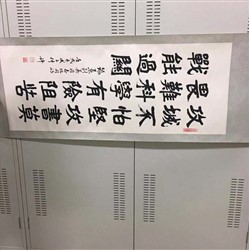 攻城不怕堅攻書莫
畏難科學有險阻苦
戰能過關